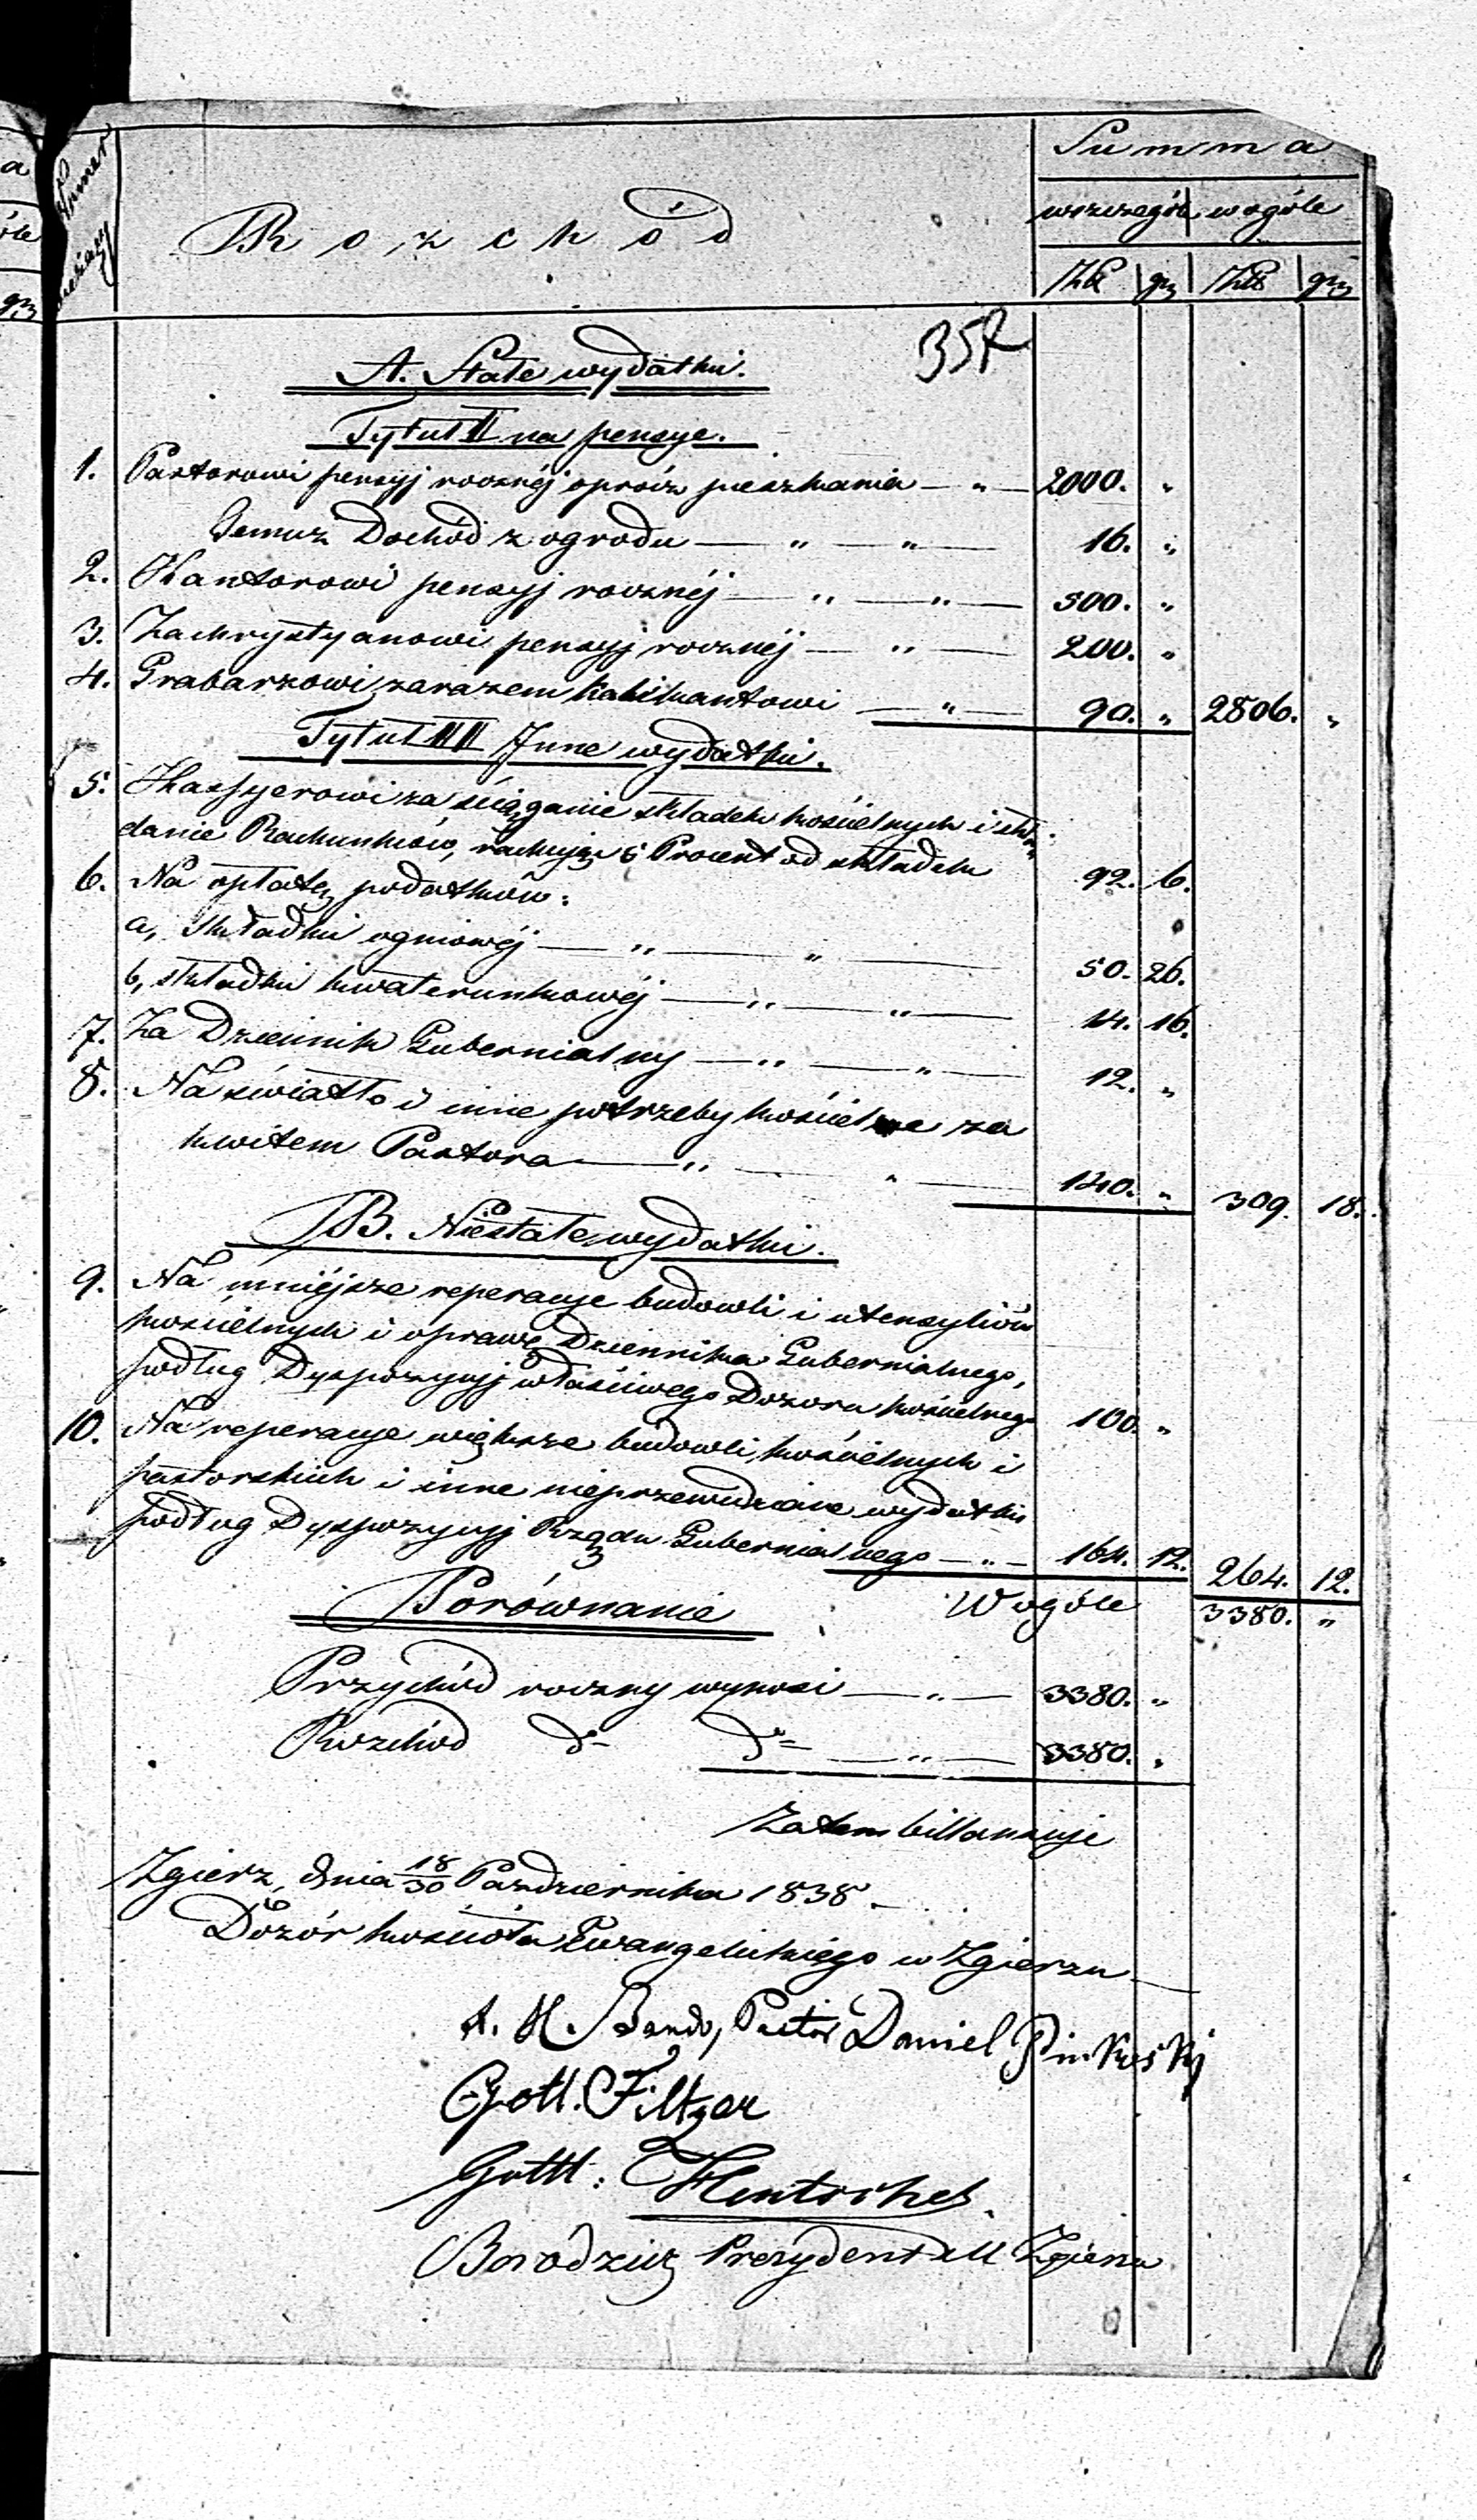 Numer
Summa
wszczegole wogóle
Rozchód
Złt gr Złt gr
357
A. Stałe wydatki.
Tytuł II na pensye.
1. Pastorowi pensyj rocznéj oprócz pieszkania — " — 2000. "
Temuz Dochód z ogrodu — " — " — 16. "
2. Kantorowi pensyj rocznéj — " — " — 500. "
3. Zachrystyanowi pensyj rocznéj — " — 200. "
4. Grabarzowi zarazem Kalikantowi — " — 90. " 2806. "
Tytuł III Inne wydatki.
5. Kassyerowi za sciąganie składek kościelnych i skła-
danie Rachunków, rachując 5 Procent od składek 92. 6.
6. Na opłatę podatków:
a, składki ogniowéj — " — " — 50. 26.
b, składki kwaterunkowéj — " — " — 14. 16.
7. Za Dziennik Gubernialny — " — " — 12. "
8. Na światło i inne potrzeby kościelne za
kwitem Pastora — " — " — 140. " 309. 18.
B. Niestałe wydatki.
9. Na mniéjsze reperacye budowli i utensyliów
kościelnych i oprawę Dziennika Gubernialnego,
podług Dyspozycyj właściwego Dozoru kościelnego 100. "
10. Na reperacye większe budowli kościelnych i
pastorskich i inne nieprzewidziane wydatki
podług Dyspozycyj Rządu Gubernialnego — " — 164. 12. 264. 12.
Wogóle 3380. "
Porównanie
Przychód roczny wynosi — " — 3380. "
Rozchód do do — " — 3380. "
Zatem billansuje
Zgierz, dnia 18/30 Pazdziernika 1838.
Dozór kościoła Ewangelickiego w Zgierzu
Pastor Daniel
Gottl. Filtzer
Gottl:
Prezydent M Zgierza